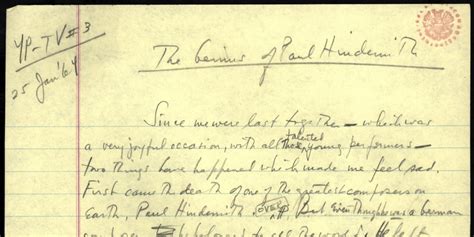 YP-TV#3
25 Jan '64
The Genius of Paul Hindemith
Since we were last together — which was
a very joyful occasion, with all those talented young performers —
two things have happened which made me feel sad.
First came the death of one of the greatest composers on
earth, Paul Hindemith. But even though he was a German